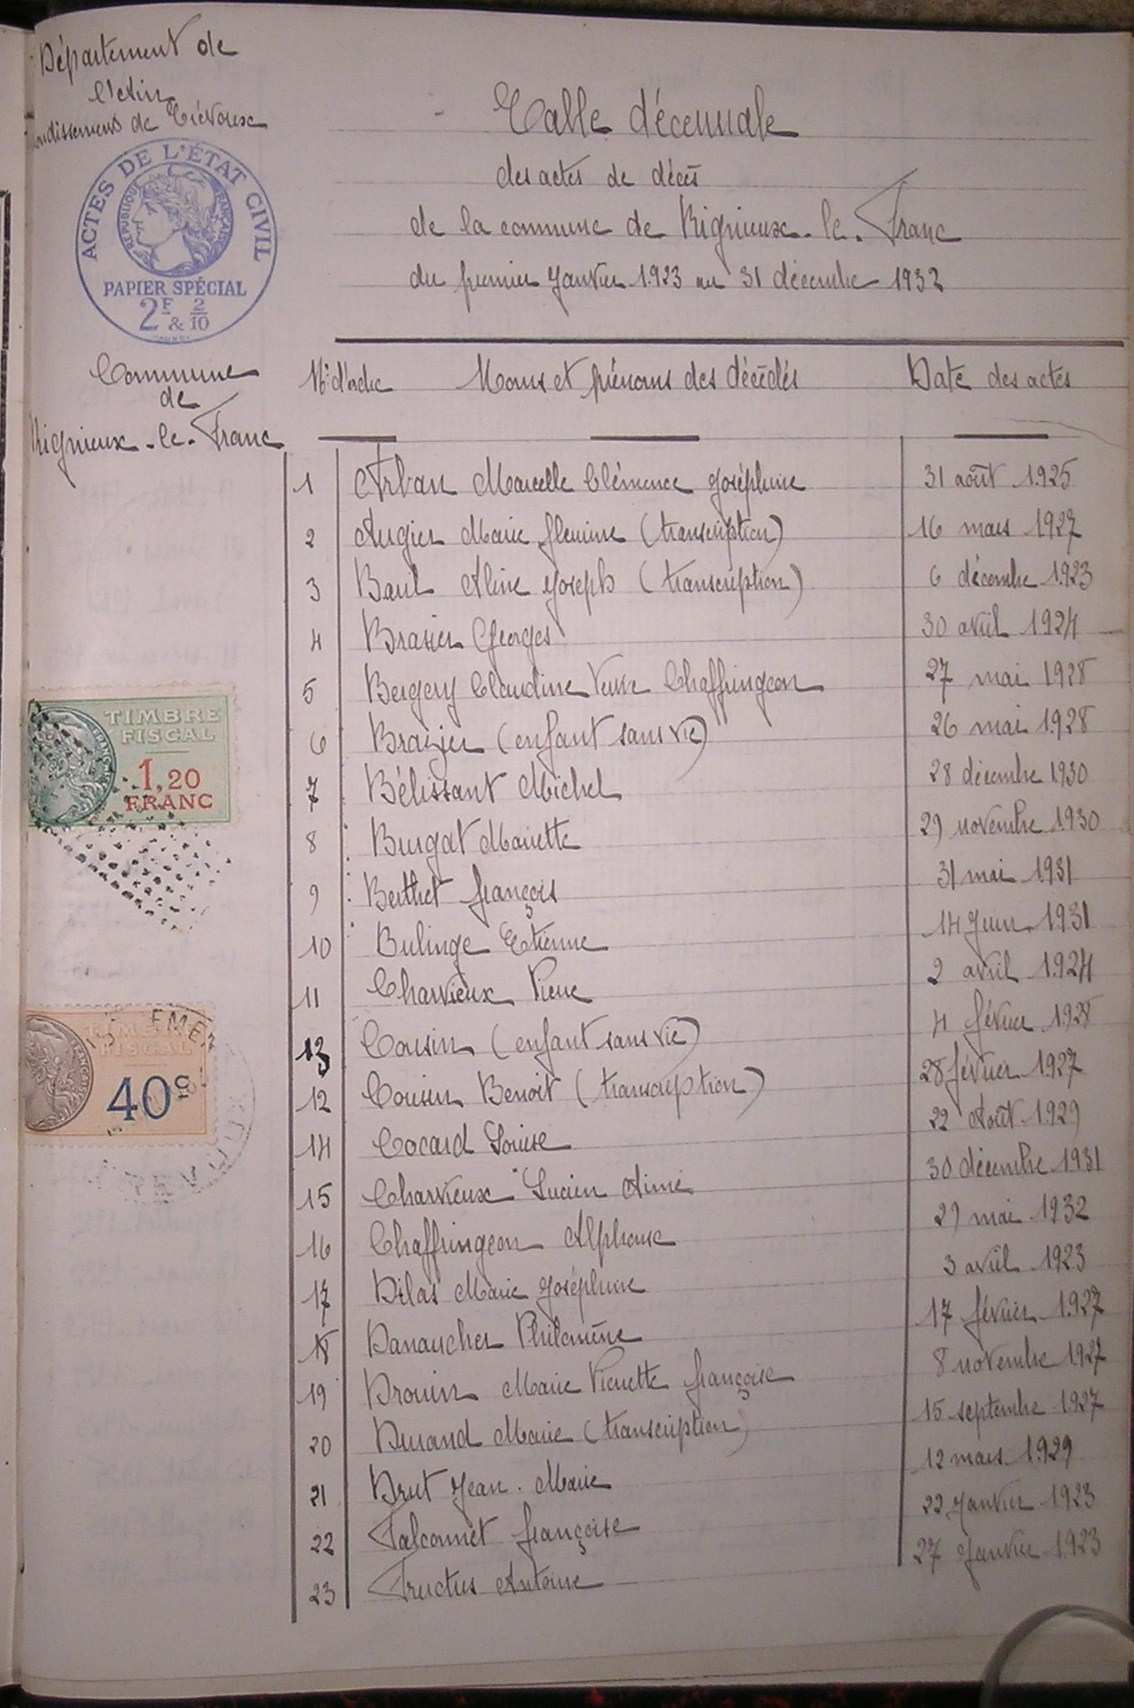 Département de
l'Ain
ondissement de Trévoux
ACTES DE L'ÉTAT CIVIL
RÉPUBLIQUE FRANÇAISE
PAPIER SPÉCIAL
2F & 2/10
Commune
de
Rignieux-le-Franc
TIMBRE
FISCAL
1,20
FRANC
FISCAL
40c
Table décennale
des actes de décès
de la commune de Rignieux-le-Franc
du premier Janvier 1923 au 31 décembre 1932
N° d'ordre Noms et prénoms des décédés Date des actes
1 Arban Marcelle Clémence Joséphine 31 août 1925
2 Augier Marie (transcription) 16 mars 1927
3 Baul Aline Joseph (transcription) 6 décembre 1923
4 Brasier Georges 30 avril 1924
5 Bergery Claudine Veuve Chaffringeon 27 mai 1928
6 Brazier (enfant sans vie) 26 mai 1928
7 Bélissant Michel 28 décembre 1930
8 Burgat Mariette 29 novembre 1930
9 Berthet françois 31 mai 1931
10 Bulinge Etienne 14 Juin 1931
11 Charvieux Pierre 2 avril 1924
13 Cousin (enfant sans vie) 4 février 1928
12 Cousin Benoit (transcription) 28 février 1927
14 Cocard Louise 22 Août 1929
15 Charvieux Lucien Aimé 30 décembre 1931
16 Chaffringeon Alphonse 29 mai 1932
17 Dilas Marie Joséphine 3 avril 1923
18 Danancher Philomène 17 février 1927
19 Drouin Marie Pierrette françoise 8 novembre 1927
20 Durand Marie (transcription) 15 septembre 1927
21 Drut Jean-Marie 12 mars 1929
22 Falconnet françoise 22 Janvier 1923
23 Fructus Antoine 27 Janvier 1923